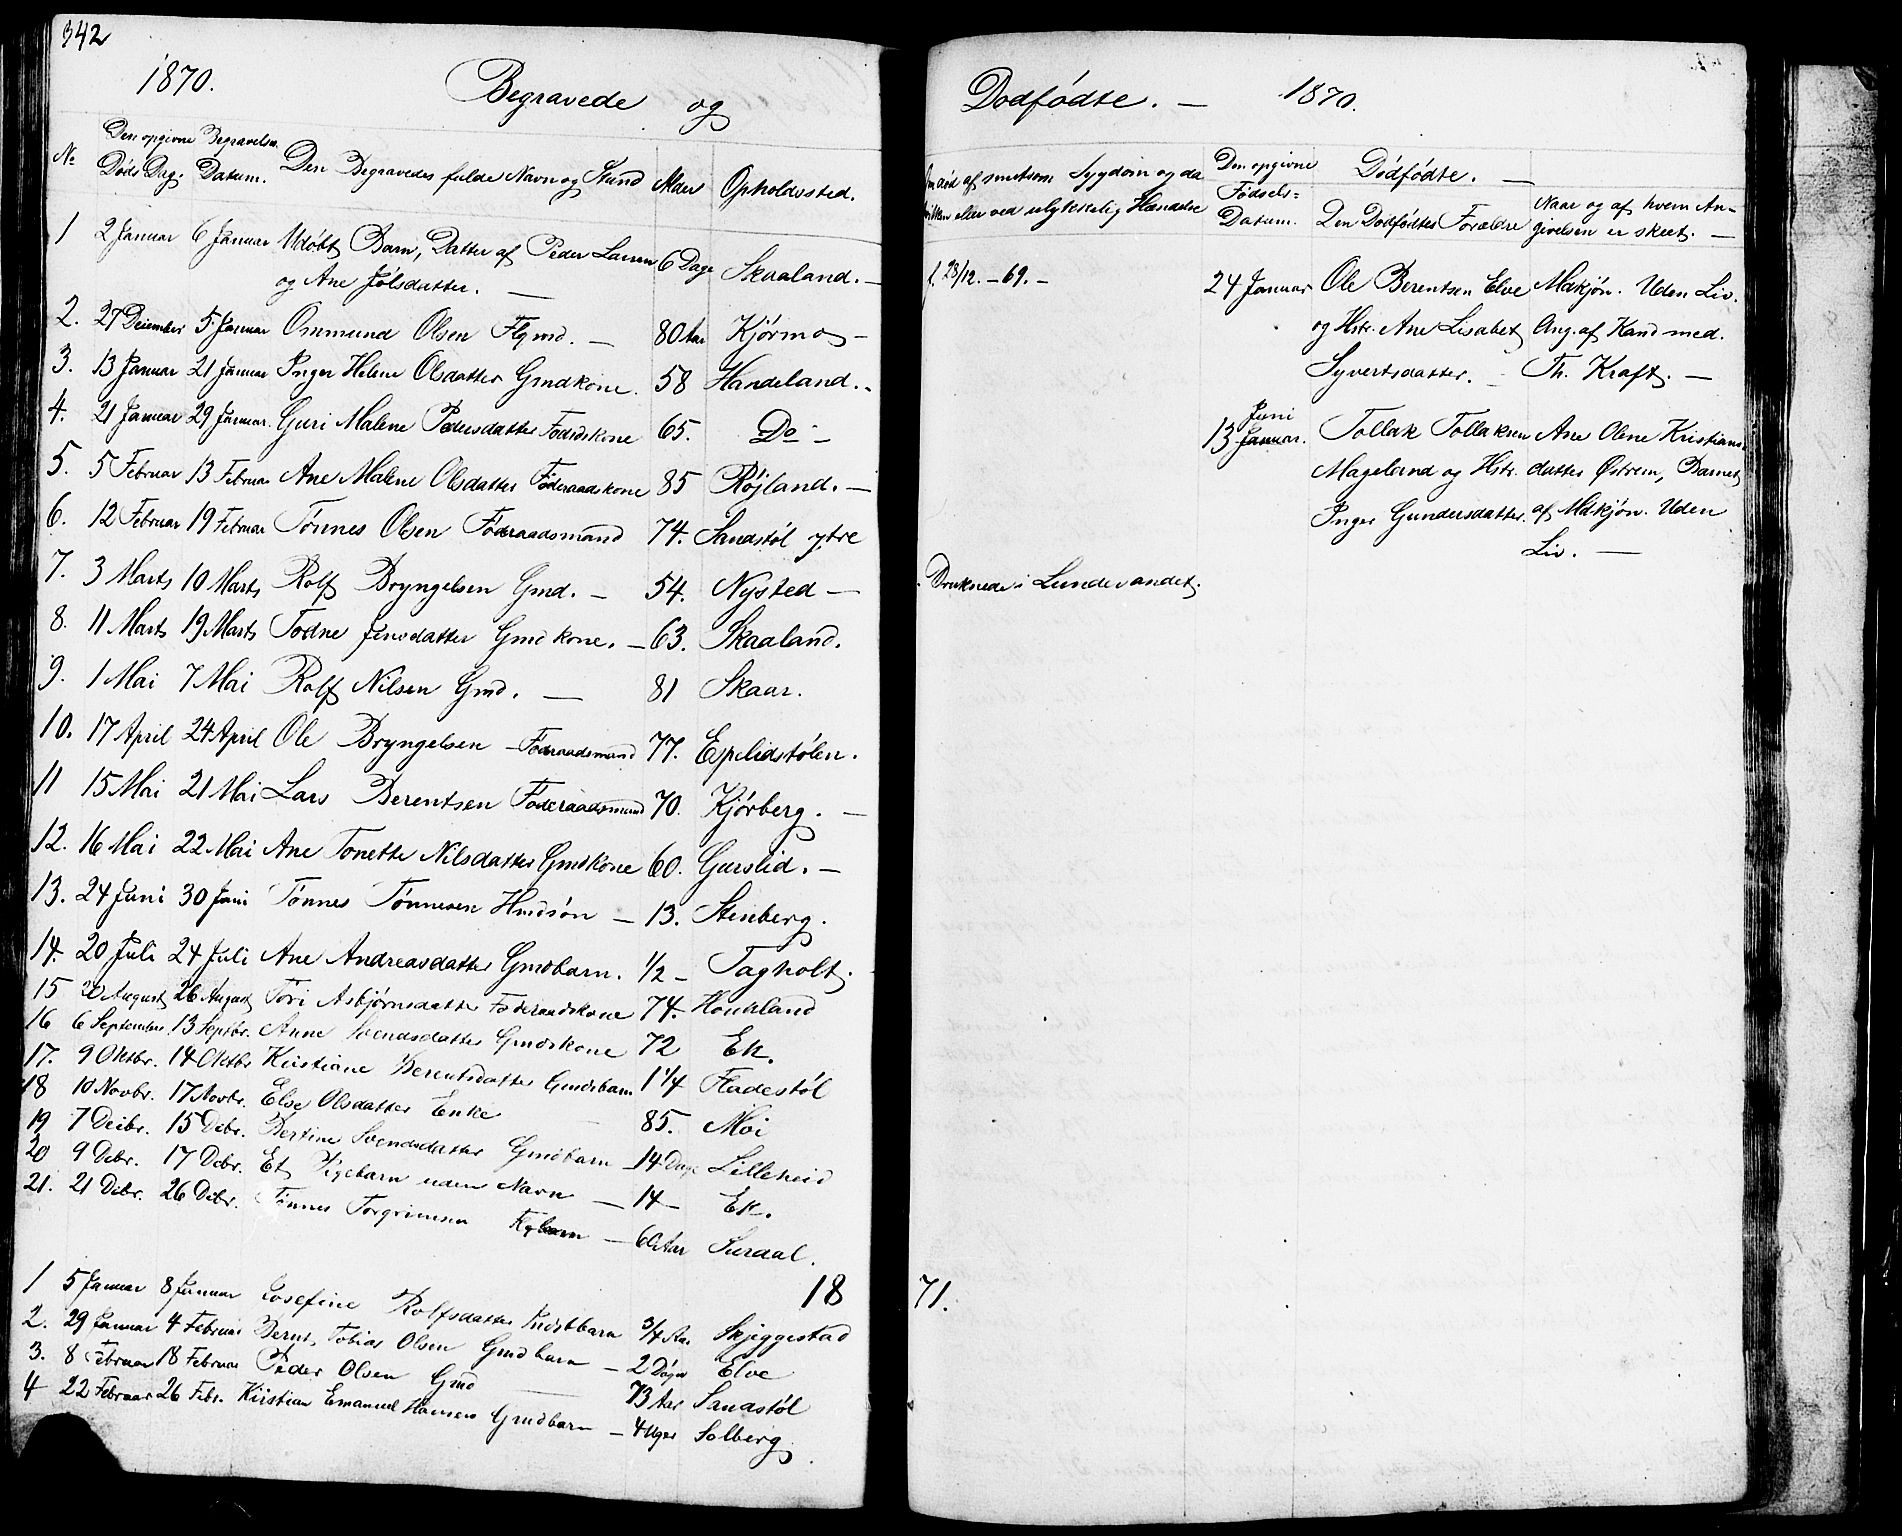 342
1870. Begravede og
№ Den opgivne Døds Dag. Begravelses Datum. Den Begravedes fulde Navn og Stand Alder Opholdssted.
1 2 Januar 6 Januar Udøbt Barn, Datter af Peder Larsen 6 Dage Skaaland. —
og Ane Jølsdatter. —
2. 27 December 5. Januar Ommund Olsen Flgmd. — 80 Aar Kjørmo —
3. 13 Januar 21 Januar Inger Helene Olsdatter Gmdkone. 58 Handeland. -
4. 21 Januar 29 Januar. Guri Malene Pedersdatter Fødrdskone 65. Do —
5. 5 Februar 13 Februar Ane Malene Olsdatter Føderaadskone 85 Røjland. —
6. 12 Februar 19 Februar Tønnes Olsen Føderaadsmand 74. Sandstøl ytre
7. 3 Marts 10 Marts Rolf Bryngelsen Gmd. — 54. Nysted —
8. 11 Marts 19 Marts Todne Jensdatter Gmdkone. — 63. Skaaland.
9. 1 Mai 7 Mai Rolf Nilsen Gmd. — 81 Skaar.
10. 17 April 24 April Ole Bryngelsen — Føderaadsmand 77. Espelidstølen.
11 15 Mai 21 Mai Lars Berentsen Føderaadsmand 70. Kjørberg. —
12. 16 Mai 22 Mai Ane Tonette Nilsdatter Gmdkone 60. Gurslid. —
13. 24 Juni 30 Juni Tønnes Tønnesen Hmdsøn — 13. Stenberg.
14. 20 Juli 24 Juli Ane Andreasdatter Gmdbarn. 1/2 — Tagholt.
15 20 August 26 August Tori Asbjørnsdatter Føderaadskone 74. Houkland
16 6 September 13 Septbr. Anne Svendsdatter Gmdskone 72 Ek.
17. 9 Oktbr. 14 Oktbr Kristiane Berentsdatter Gmdsbarn 1 1/4 Fladestøl
18 10 Novbr. 17 Novbr. Else Olsdatter Enke 85. Moi
19 7 Decbr. 15 Debr. Bertine Svendsdatter Gmdbarn — 14 Dage Lilleheid
20 9 Debr. 17 Debr. Et Pigebarn uden Navn — 14 — Ek.
21. 21 Debr. 26 Debr. Tønnes Torgrimsen — 60 Aar Surdal.
18
1 5 Januar 8 Januar Josefine Rolfsdatter Indstbarn 3/4 Aar Skjeggestad
2. 29 Januar 4 Februar Bernt Tobias Olsen Gmdbarn — 2 Døgn Elve
3. 8 Februar 18 Februar Peder Olsen Gmd — 73 Aar Sandstøl
4 22 Februar 26 Febr. Kristian Emanuel Hansen Gmdbarn — 4 Uger Solberg
Dodfødte. — 1870.
Om død af smitsom Sygdom og da
hvilken eller ved ulykkelig Hændelse
Den opgivne Fødsels= Datum.
Dødfødte. —
Den Dodfødtes Forældre
Naar og af hvem Angivelsen er skeet. —
f. 28/12. — 69. —
24 Januar Ole Berentsen Elve Mdkjøn. Uden Liv.
og Hstr. Ane Lisabet Ang. af Kand med.
Syvertsdatter. — Th. Kraft. —
Juni
13 Januar. Tollak Tollaksen Ane Olene Kristians-
Mageland og Hstr. datter Østrem, Barnet
Inger Gundersdatter. af Mdkjøn. Uden
Liv. —
Druknede i Lundevandet.
71.